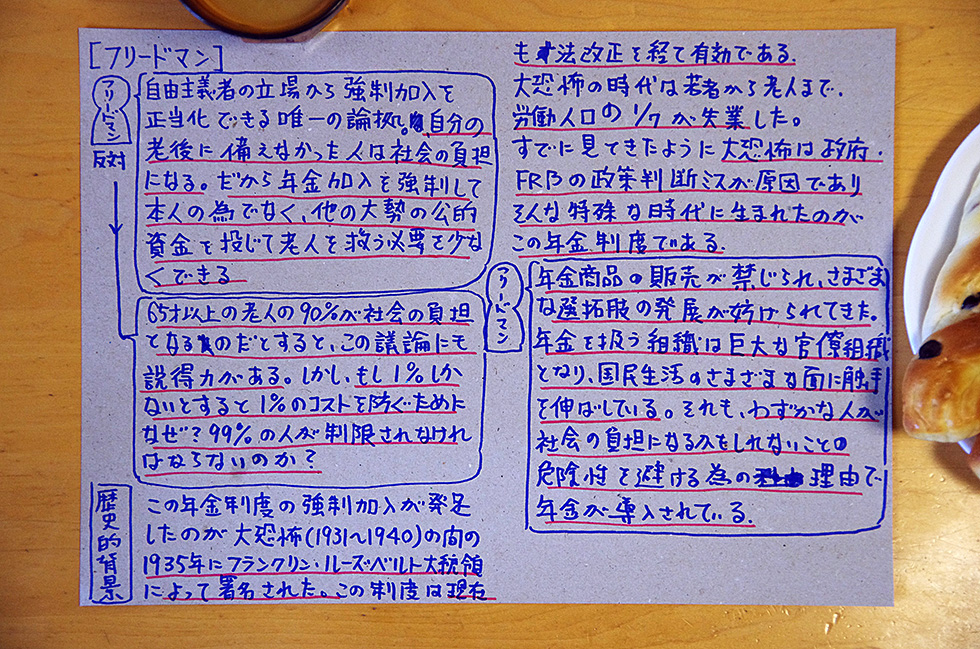 [フリードマン]
フリードマン
反対
自由主義者の立場から強制加入を
正当化できる唯一の論拠。自分の
老後に備えなかった人は社会の負担
になる。だから年金加入を強制して
本人の為でなく、他の大勢の公的
資金を投じて老人を救う必要を少な
くできる
65才以上の老人の90%が社会の負担
となるのだとすると、この議論にも
説得力がある。しかし、もし1%しか
ないとすると1%のコストを防ぐために
なぜ?99%の人が制限されなけれ
ばならないのか?
歴史的背景
この年金制度の強制加入が発足
したのが大恐怖(1931~1940)の間の
1935年にフランクリン・ルーズベルト大統領
によって署名された。この制度は現在
も法改正を経て有効である.
大恐怖の時代は若者から老人まで.
労働人口の1/7が失業した。
すでに見てきたように大恐怖は政府・
FRBの政策判断ミスが原因であり
そんな特殊な時代に生まれたのが
この年金制度である.
フリードマン
年金商品の販売が禁じられ、さまざま
な選拓肢の発展が妨げられてきた。
年金を扱う組織は巨大な官僚組織
となり、国民生活のさまざまな面に触手
を伸ばしている。それも、わずかな人が
社会の負担になるかもしれないことの
危険性を避ける為の理由で
年金が導入されている.